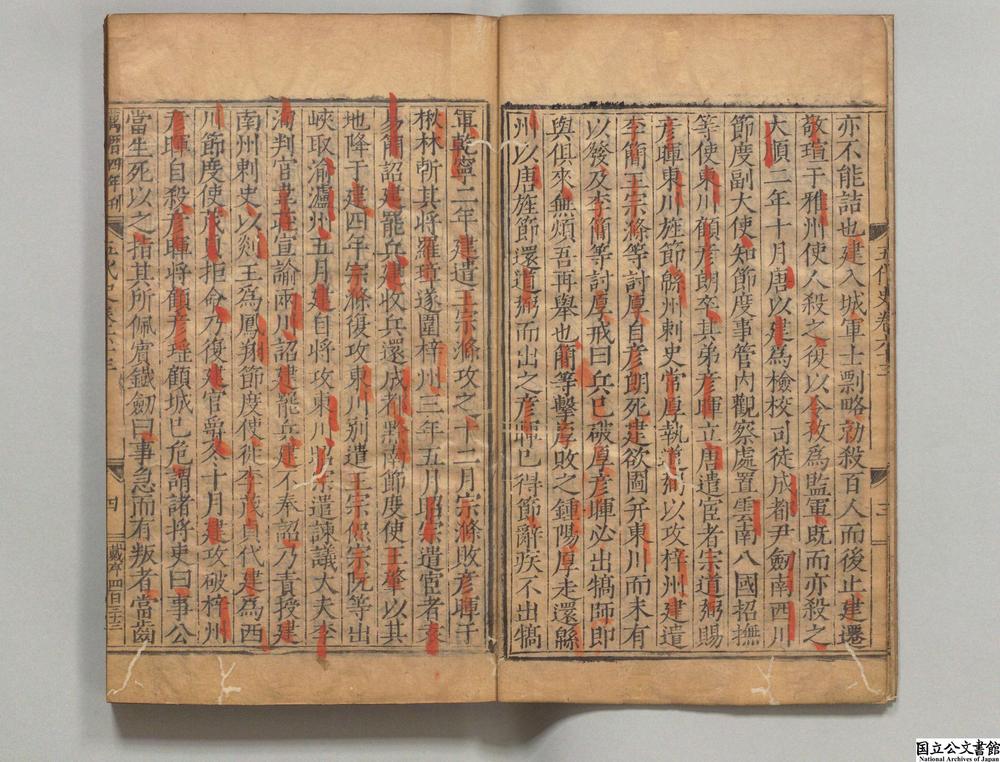 亦不能詰也建入城軍士剽略劾殺百人而後止建遷
敬瑄于雅州使人殺之復以令孜為監軍既而亦殺之
大順二年十月唐以建為檢校司徒成都尹劒南西川
節度副大使知節度事管內觀察處置雲南八國招撫
等使東川顧彥朗卒其弟彥暉立唐遣宦者宗道弼賜
彥暉東川旌節緜州刺史常厚執道弼以攻梓州建遣
李簡王宗滌等討厚自彥朗死建欲圖并東川而未有
以發及李簡等討厚戒曰兵已破厚彥暉必出犒師即
與俱來無煩吾再舉也簡等擊厚敗之鍾陽厚走還緜
州以唐旌節還道弼而出之彥暉已得節辭疾不出犒
五代史卷六十三
三
軍乾寧二年建遣王宗滌攻之十二月宗滌敗彥暉于
楸林斬其將羅璋遂圍梓州三年五月昭宗遣宦者袁
易簡詔建罷兵建收兵還成都黔南節度使王肇以其
地降于建四年宗滌復攻東川別遣王宗侃宗阮等出
峽取渝瀘州五月建自將攻東川昭宗遣諫議大夫李
洵判官韋莊宣諭兩川詔建罷兵建不奉詔乃責授建
南州刺史以郯王為鳳翔節度使徙李茂貞代建為西
川節度使茂貞拒命乃復建官爵冬十月建攻破梓州
彥暉自殺彥暉將顧彥瑤顧城已危謂諸將吏曰事公
當生死以之指其所佩賓鐵劒曰事急而有叛者當齒
萬曆四年刊
五代史卷六十三
四
國立公文書館
National Archives of Japan